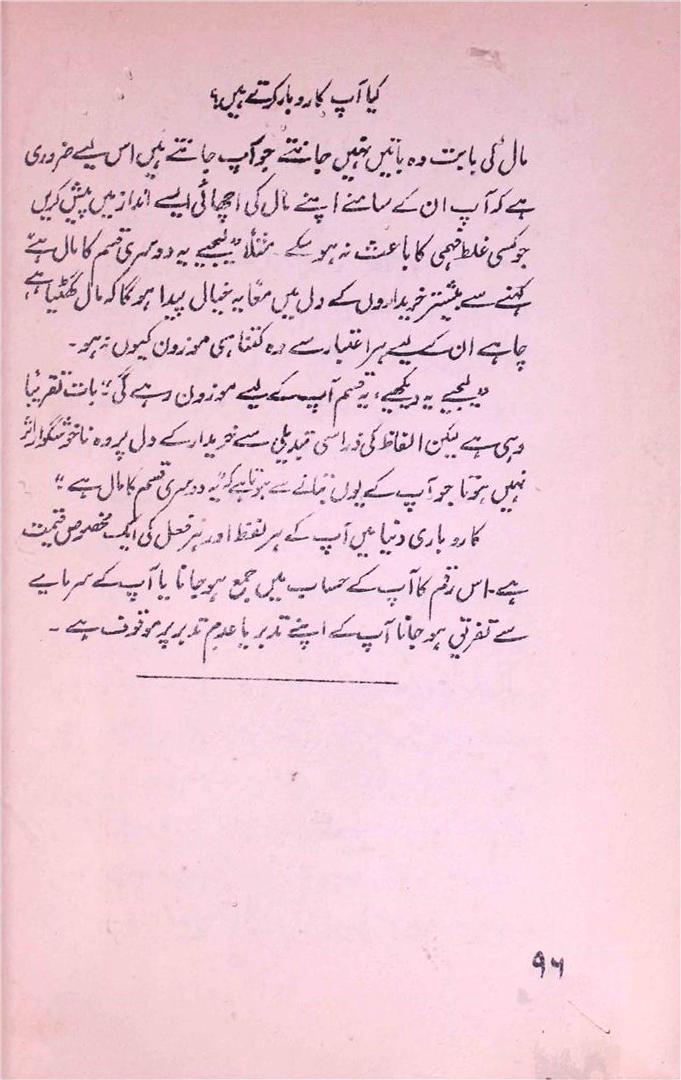 کیا آپ کاروبار کرتے ہیں؟
مال کی بابت وہ باتیں نہیں جانتے جو آپ جانتے ہیں اس لیے ضروری
ہے کہ آپ ان کے سامنے اپنے مال کی اچھائی ایسے انداز میں پیش کریں
جو کسی غلط فہمی کا باعث نہ ہو سکے ۔ مثلاً "لیجیے یہ دوسری قسم کا مال ہے"
کہنے سے بیشتر خریداروں کے دل میں معاً یہ خیال پیدا ہوگا کہ مال گھٹیا ہے
چاہے ان کے لیے ہر اعتبار سے وہ کتنا ہی موزون کیوں نہ ہو ۔
"لیجیے یہ دیکھیے، یہ قسم آپ کے لیے موزون رہے گی" بات تقریباً
وہی ہے لیکن الفاظ کی ذرا سی تبدیلی سے خریدار کے دل پر وہ ناخوشگوار اثر
نہیں ہوتا جو آپ کے یوں بتانے سے ہوتا ہے کہ "یہ دوسری قسم کا مال ہے"
کاروباری دنیا میں آپ کے ہر لفظ اور ہر فعل کی ایک مخصوص قیمت
ہے۔ اس رقم کا آپ کے حساب میں جمع ہو جانا یا آپ کے سرمایے
سے تفریق ہو جانا آپ کے اپنے تدبر یا عدم تدبر پر موقوف ہے ۔
۹۶